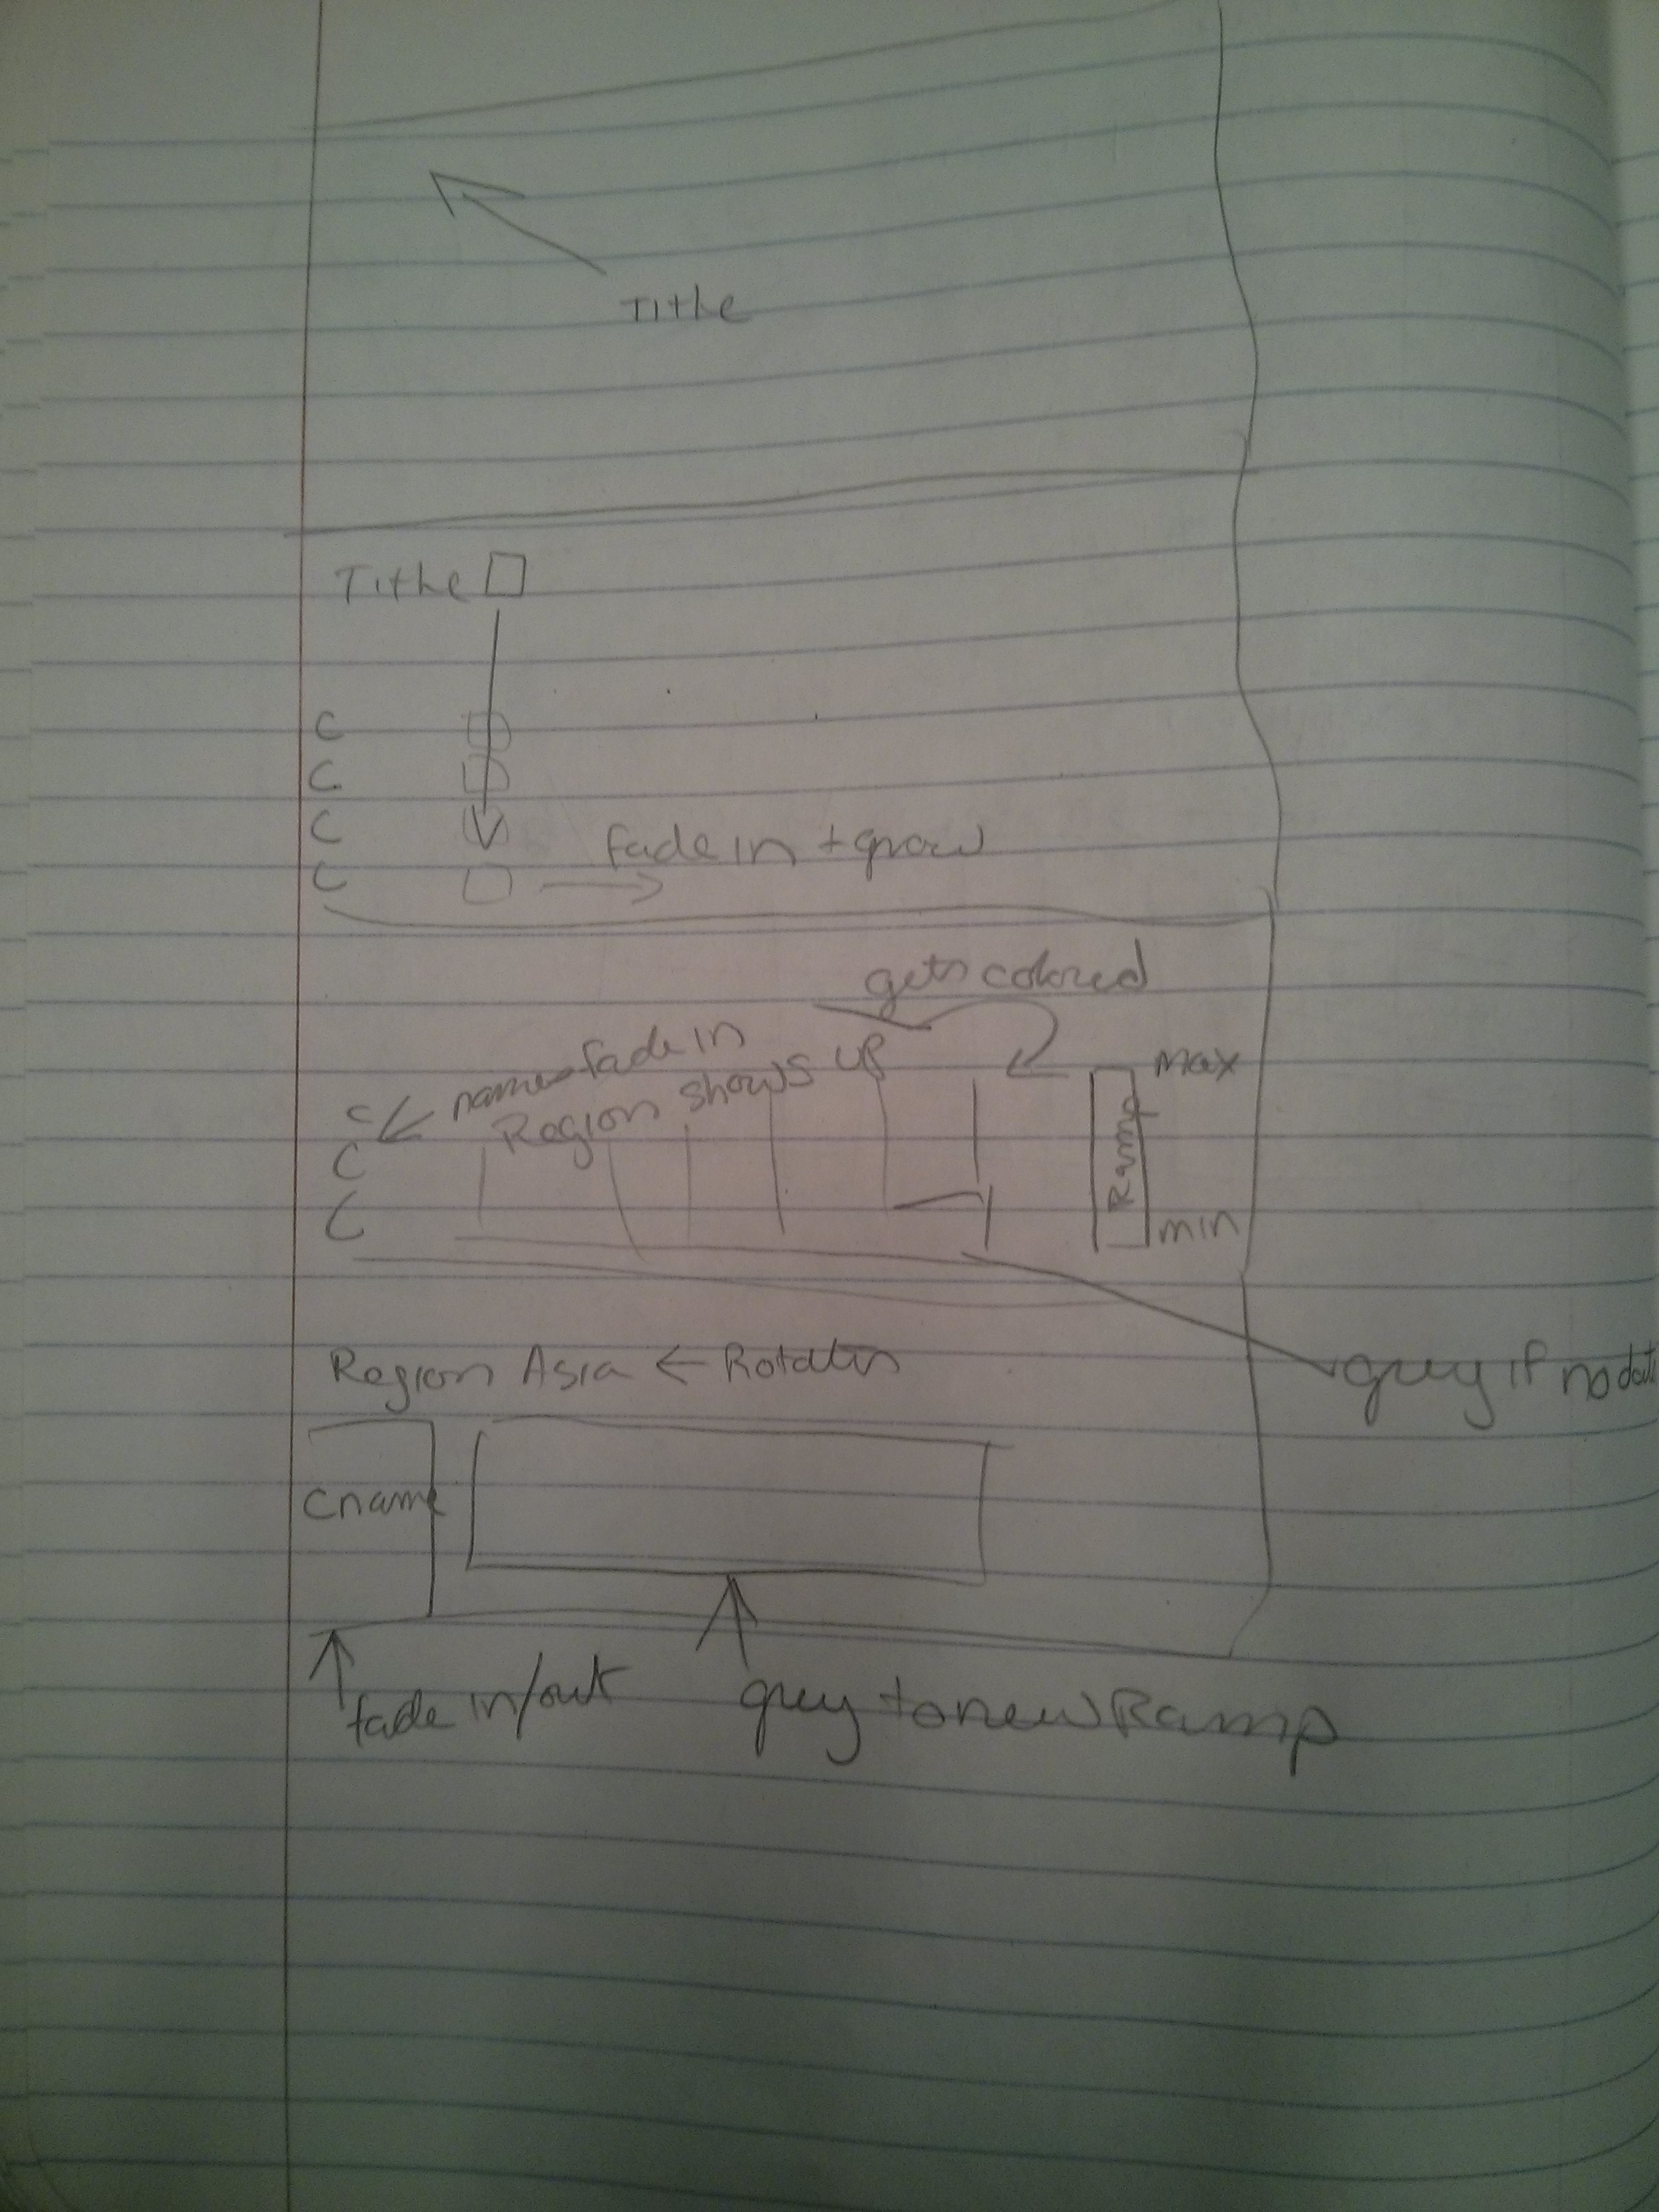 Title
Title
C
C
C
C
fade in + grow
gets colored
names fade in
Region shows up
C
C
C
Ramp
max
min
grey if no data
Region Asia ← Rotates
Cname
fade in/out
grey to new Ramp